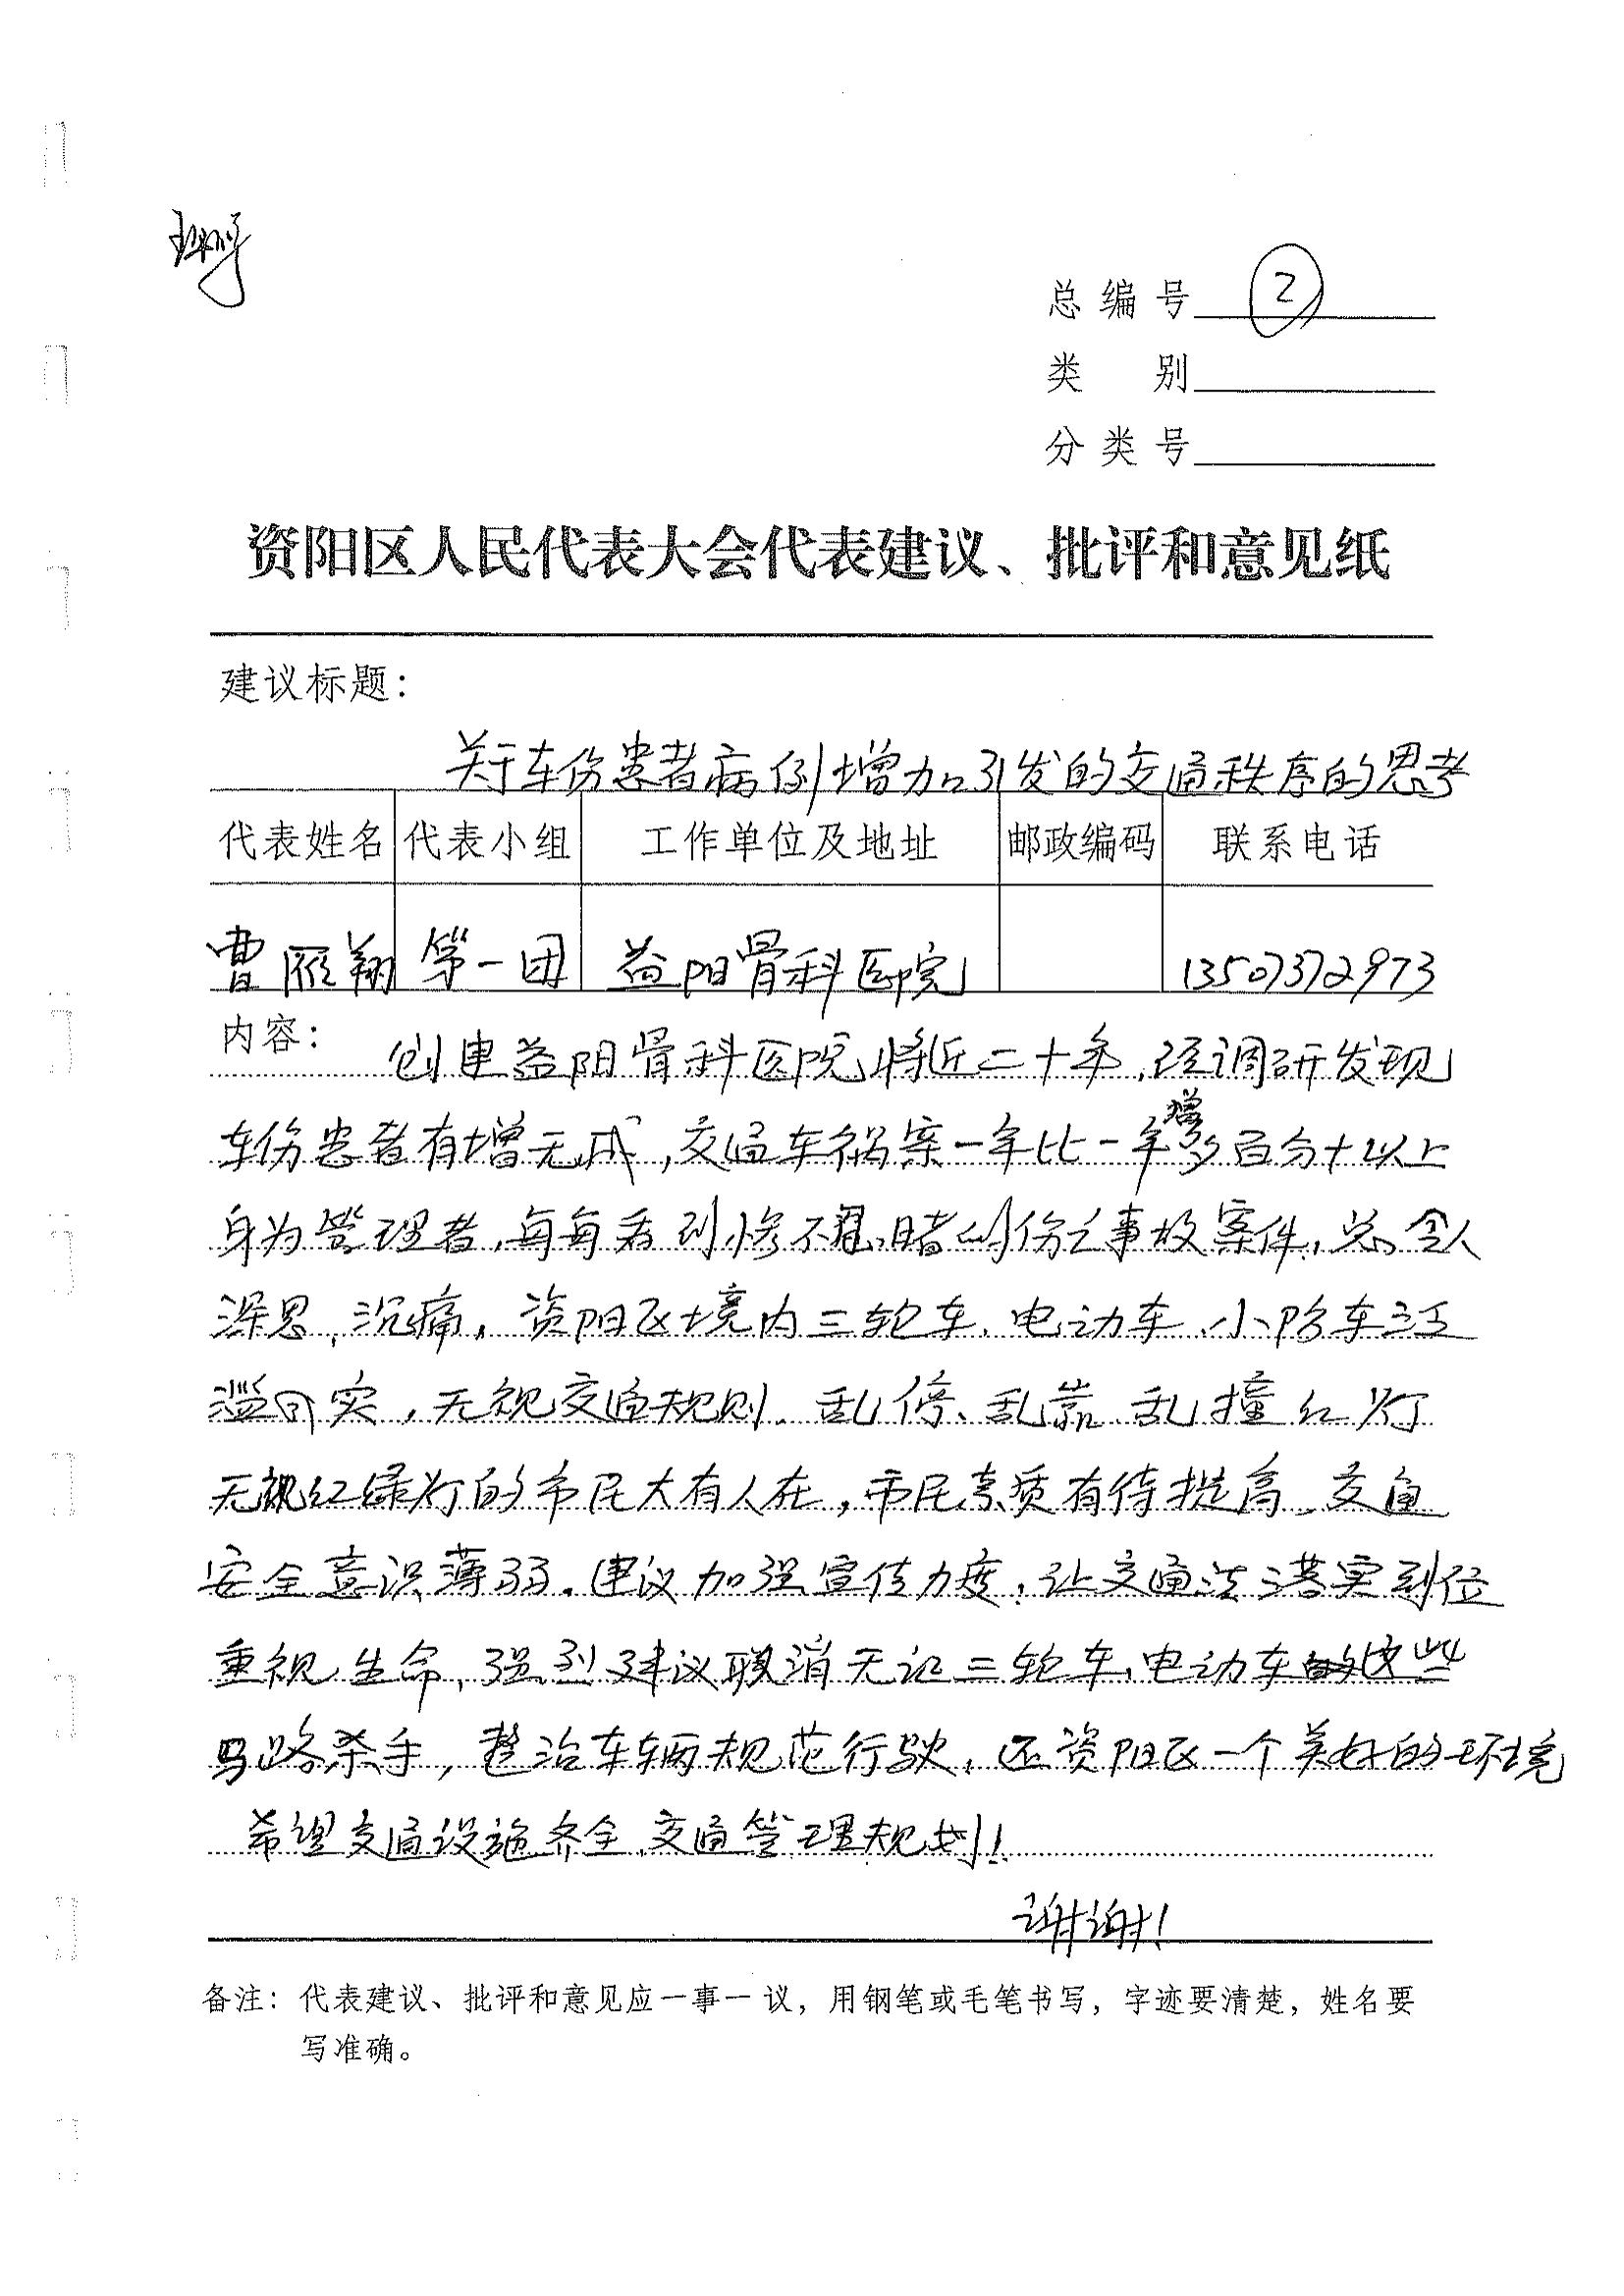 总编号 2
类 别
分类号
资阳区人民代表大会代表建议、批评和意见纸
建议标题：
关于车伤患者病例增加引发的交通秩序的思考
代表姓名 代表小组 工作单位及地址 邮政编码 联系电话
曹雁翔 第一团 益阳骨科医院 13507372973
内容： 创建益阳骨科医院将近二十年，经调研发现
车伤患者有增无减，交通车祸案一年比一年增多百分十以上
身为管理者，每每看到惨不忍睹的伤亡事故案件，总令人
深思、沉痛。资阳区境内三轮车、电动车、小
，无视交通规则、乱停、乱靠 乱撞红灯
无视红绿灯的市民大有人在，市民素质有待提高、交通
安全意识薄弱。建议加强宣传力度，让交通法落实到位
重视生命，强烈建议取消无证三轮车、电动车这些
马路杀手，整治车辆规范行驶，还资阳区一个美好的环境
希望交通设施齐全，交通管理规划！
谢谢！
备注：代表建议、批评和意见应一事一议，用钢笔或毛笔书写，字迹要清楚，姓名要
写准确。